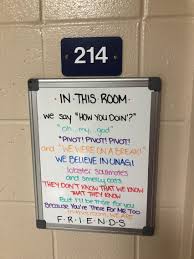 214
IN THIS ROOM
we say "HOW YOU DOIN'?"
"oh... my... god"
"PIVOT! PIVOT! PIVOT!
and "WE WERE ON A BREAK!"
WE BELIEVE IN UNAGI
lobster soulmates
and smelly cats
THEY DON'T KNOW THAT WE KNOW
THAT THEY KNOW
But I'll be there for you
Because You're There For Me Too.
F•R•I•E•N•D•S